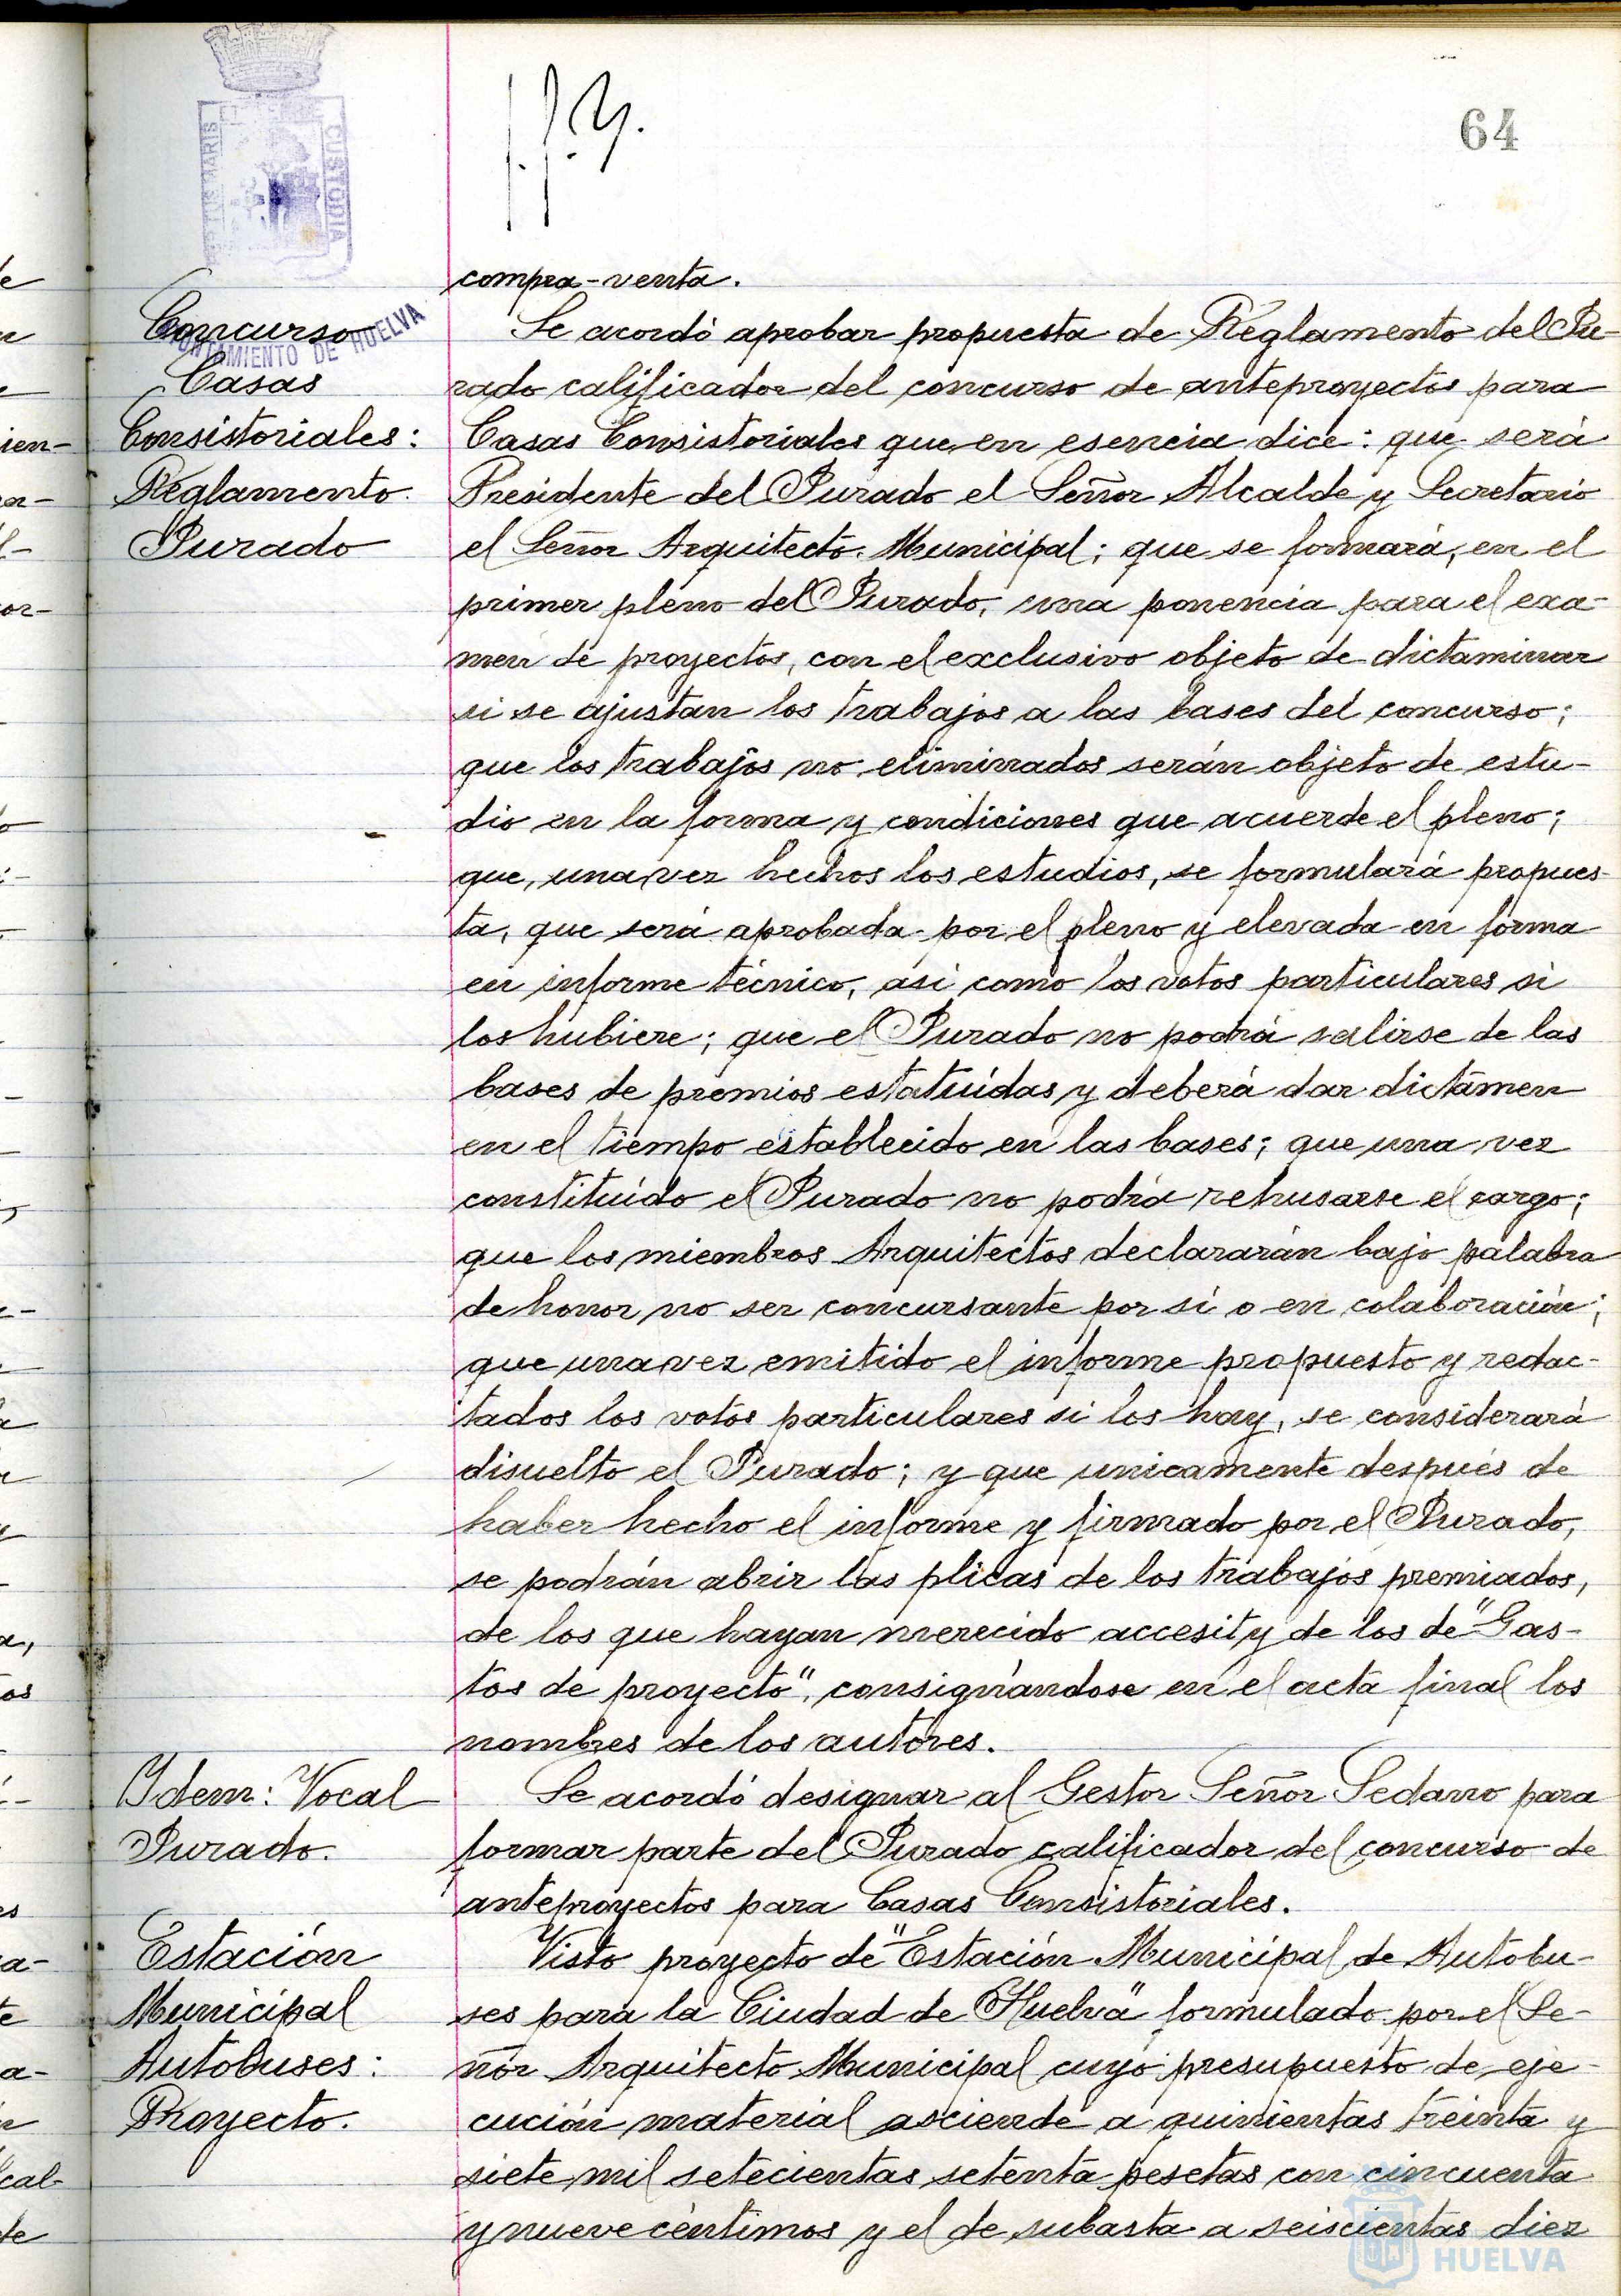 64
compra-venta.
Concurso
Casas
Consistoriales:
Reglamento
Jurado
Se acordó aprobar propuesta de Reglamento del Ju-
rado calificador del concurso de anteproyectos para
Casas Consistoriales que en esencia dice: que será
Presidente del Jurado el Señor Alcalde y Secretario
el Señor Arquitecto Municipal; que se formará, en el
primer pleno del Jurado, una ponencia para el exa-
men de proyectos, con el exclusivo objeto de dictaminar
si se ajustan los trabajos a las bases del concurso;
que los trabajos no eliminados serán objeto de estu-
dio en la forma y condiciones que acuerde el pleno;
que, una vez hechos los estudios, se formulará propues-
ta, que será aprobada por el pleno y elevada en forma
en informe técnico, así como los votos particulares si
los hubiere; que el Jurado no podrá salirse de las
bases de premios estatuídas y deberá dar dictámen
en el tiempo establecido en las bases; que una vez
constituído el Jurado no podrá rehusarse el cargo;
que los miembros Arquitectos declararán bajo palabra
de honor no ser concursante por sí o en colaboración;
que una vez emitido el informe propuesto y redac-
tados los votos particulares si los hay, se considerará
disuelto el Jurado; y que unicamente después de
haber hecho el informe y firmado por el Jurado,
se podrán abrir las plicas de los trabajos premiados,
de los que hayan merecido accesit y de los de "Gas-
tos de proyecto", consignándose en el acta final los
nombres de los autores.
Idem: Vocal
Jurado.
Se acordó designar al Gestor Señor Sedano para
formar parte del Jurado calificador del concurso de
anteproyectos para Casas Consistoriales.
Estación
Municipal
Autobuses:
Proyecto.
Visto proyecto de "Estación Municipal de Autobu-
ses para la Ciudad de Huelva" formulado por el Se-
ñor Arquitecto Municipal cuyo presupuesto de eje-
cución material asciende a quinientas treinta y
siete mil setecientas setenta pesetas con cincuenta
y nueve céntimos y el de subasta a seiscientas diez
CUSTODIA
AYUNTAMIENTO DE HUELVA
HUELVA